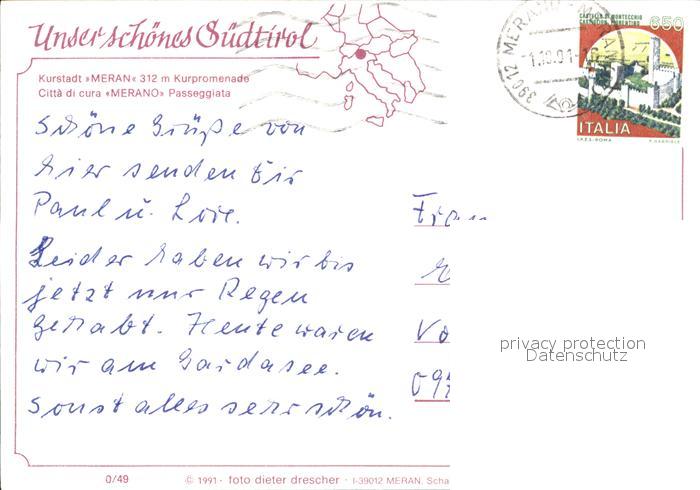 Unser schönes Südtirol
Kurstadt »MERAN« 312 m Kurpromenade
Città di cura «MERANO» Passeggiata
CASTELLO DI MONTECCHIO
CASTIGLION FIORENTINO
650
39012 MERANO - MERAN
ITALIA
I.P.Z.S.-ROMA
Schöne Grüße von
hier senden Dir
Paul u. Lore.
Leider haben wir bis
jetzt nur Regen
gehabt. Heute waren
wir am Gardasee.
Sonst alles sehr schön.
Frau
privacy protection
Datenschutz
0/49
© 1991 · foto dieter drescher · I-39012 MERAN, Scha